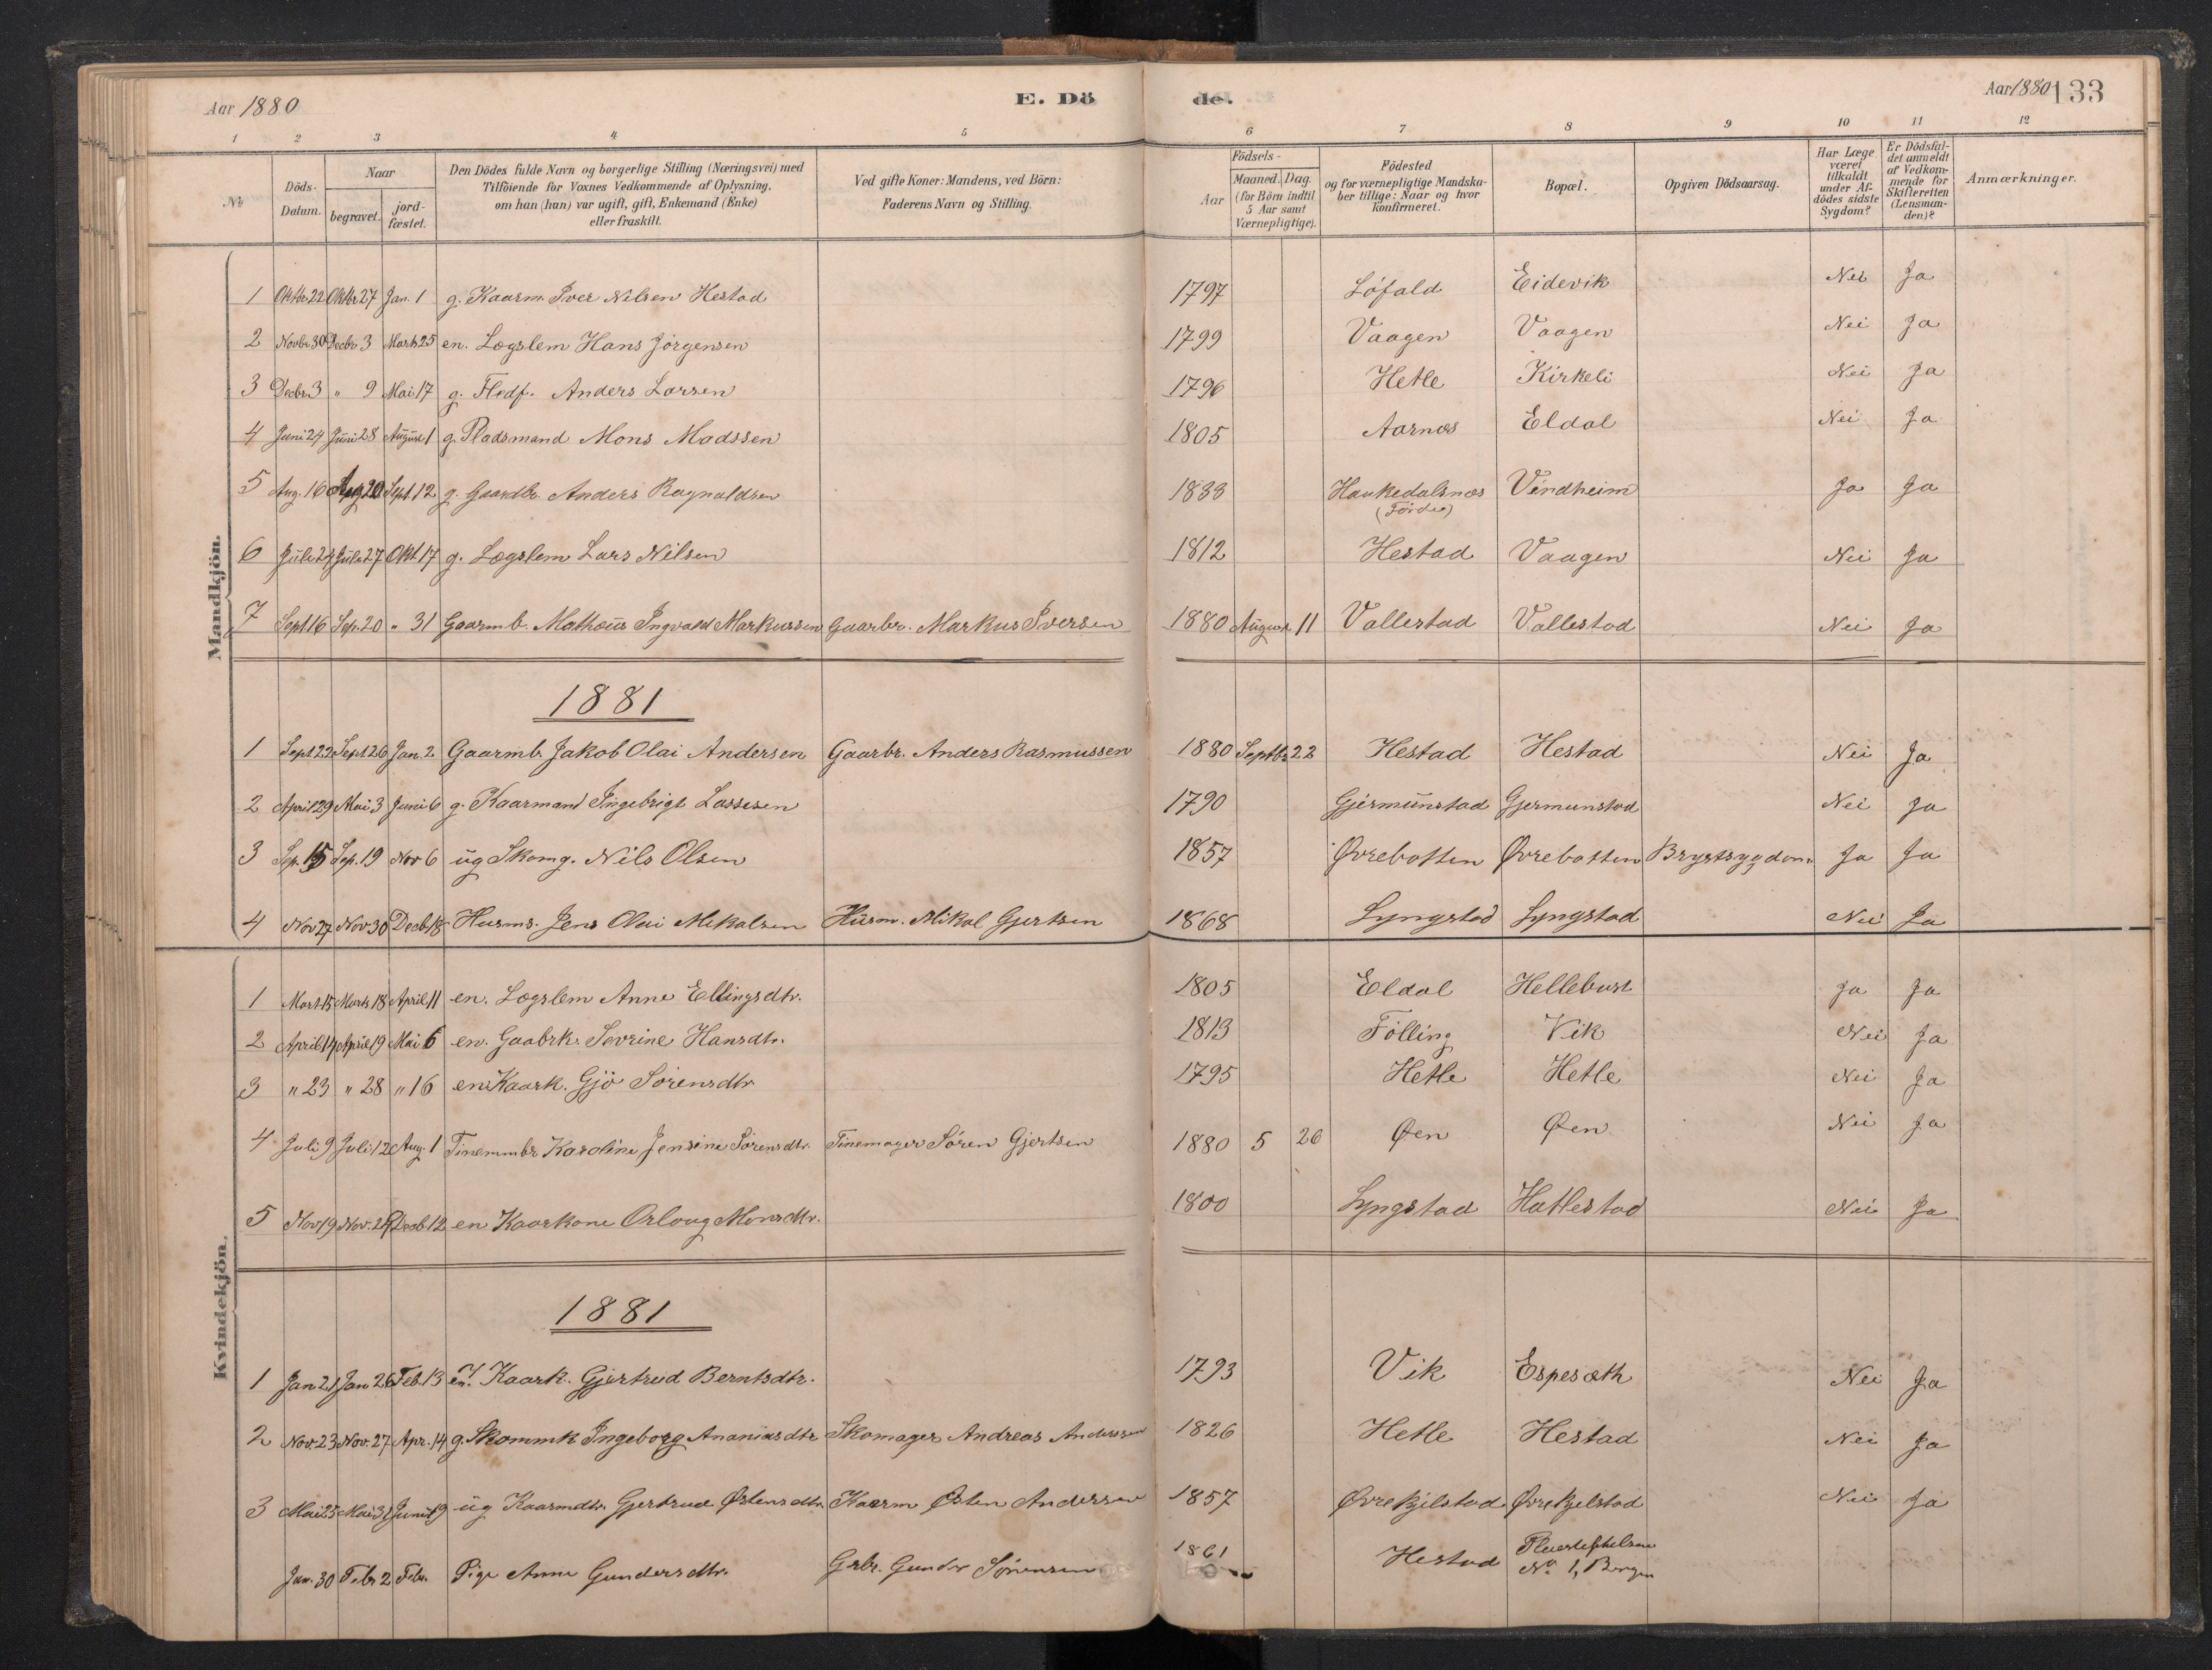 Aar 1880
E. Dö
de.
Aar 1880 133
1 2 3 4 5 6 7 8 9 10 11 12
№
Döds-
Datum.
Naar
begravet.
jord-
fæstet.
Den Dödes fulde Navn og borgerlige Stilling (Næringsvei) med
Tilföiende for Voxnes Vedkommende af Oplysning,
om han (hun) var ugift, gift, Enkemand (Enke)
eller fraskilt.
Ved gifte Koner: Mandens, ved Börn:
Faderens Navn og Stilling.
Födsels-
Aar
Maaned. Dag.
(for Börn indtil
5 Aar samt
Værnepligtige).
Födested
og for værnepligtige Mandska-
ber tillige: Naar og hvor
konfirmeret.
Bopæl.
Opgiven Dödsaarsag.
Har Læge
været
tilkaldt
under Af-
dödes sidste
Sygdom?
Er Dödsfal-
det anmeldt
af Vedkom-
mende for
Skifteretten
(Lensman-
den)?
Anmærkninger.
Mandkjön.
1 Oktbr 22 Oktbr 27 Jan. 1 g. Kaarm. Iver Nilsen Hestad 1797 Löfald Eidevik Nei Ja
2 Novbr 30 Decbr 3 Marts 25 en. Lægslem Hans Jörgensen 1799 Vaagen Vaagen Nei Ja
3 Decbr. 3 " 9 Mai 17 g. Flodf. Anders Larsen 1796 Hetle Kirkeli Nei Ja
4 Juni 24 Juni 28 August 1 g. Pladsmand Mons Madssen 1805 Aarnæs Eldal Nei Ja
5 Aug. 16 Aug 20 Sept. 12 g. Gaardbr. Anders Ragnaldsen 1833 Haukedalsnæs Vindheim Ja Ja
(Förde)
6 Juli 24 Juli 27 Okt 17 g. Lægslem Lars Nilsen 1812 Hestad Vaagen Nei Ja
7 Sept 16 Sep. 20 " 31 Gaarmb. Mathæus Ingvald Markussen Gaarbr. Markus Iversen 1880 August 11 Vallestad Vallestad Nei Ja
1881
1 Sept 22 Sept 26 Jan. 2. Gaarmb. Jakob Olai Andersen Gaarbr. Anders Rasmussen 1880 Septbr 22 Hestad Hestad Nei Ja
2 April 29 Mai 3 Juni 6 g. Kaarmand Ingebrigt Lassesen 1790 Gjermunstad Gjermunstad Nei Ja
3 Sep. 15 Sep. 19 Nov 6 ug Skomg. Nils Olsen 1857 Øvrebotten Øvrebotten Brystsygdom Ja Ja
4 Nov 27 Nov 30 Decb 18 Husms. Jens Olai Mikalsen Husm. Mikal Gjertsen 1868 Lyngstad Lyngstad Nei Ja
Kvindekjön.
1 Mart 15 Marts 18 April 11 en. Lægslem Anne Ellingsdtr. 1805 Eldal Hellebust Ja Ja
2 April 14 April 19 Mai 6 en. Gaabrk. Sevrine Hansdtr. 1813 Fölling Vik Nei Ja
3 " 23 " 28 " 16 en Kaark. Gjö Sörensdtr 1795 Hetle Hetle Nei Ja
4 Juli 9 Juli 12 Aug. 1 Tinemmbr Karoline Jensine Sörensdtr. Tinemager Sören Gjertsen 1880 5 26 Øen Øen Nei Ja
5 Nov 19 Nov. Decb. 12 en Kaarkone Orloug Monsdtr. 1800 Lyngstad Hatlestad Nei Ja
1881
1 Jan 21 Jan 26 Feb. 13 en. Kaark. Gjertrud Berntsdtr. 1793 Vik Espesæth Nei Ja
2 Nov. 23 Nov. 27 Apr. 14 g. Skommk Ingeborg Ananiasdtr Skomager Andreas Anderssen 1826 Hetle Hestad Nei Ja
3 Mai 25 Mai 31 Juni 19 ug Kaarmdtr. Gjertrud Østensdtr. Kaarm Østen Andersen 1857 Øvrekjelstad Øvrekjelstad Nei Ja
Jan. 30 Febr 2 Febr. Pige Anne Gundersdtr. Grbr. Gunder Sörensen 1861 Hestad Pleiestiftelsen
No. 1, Bergen